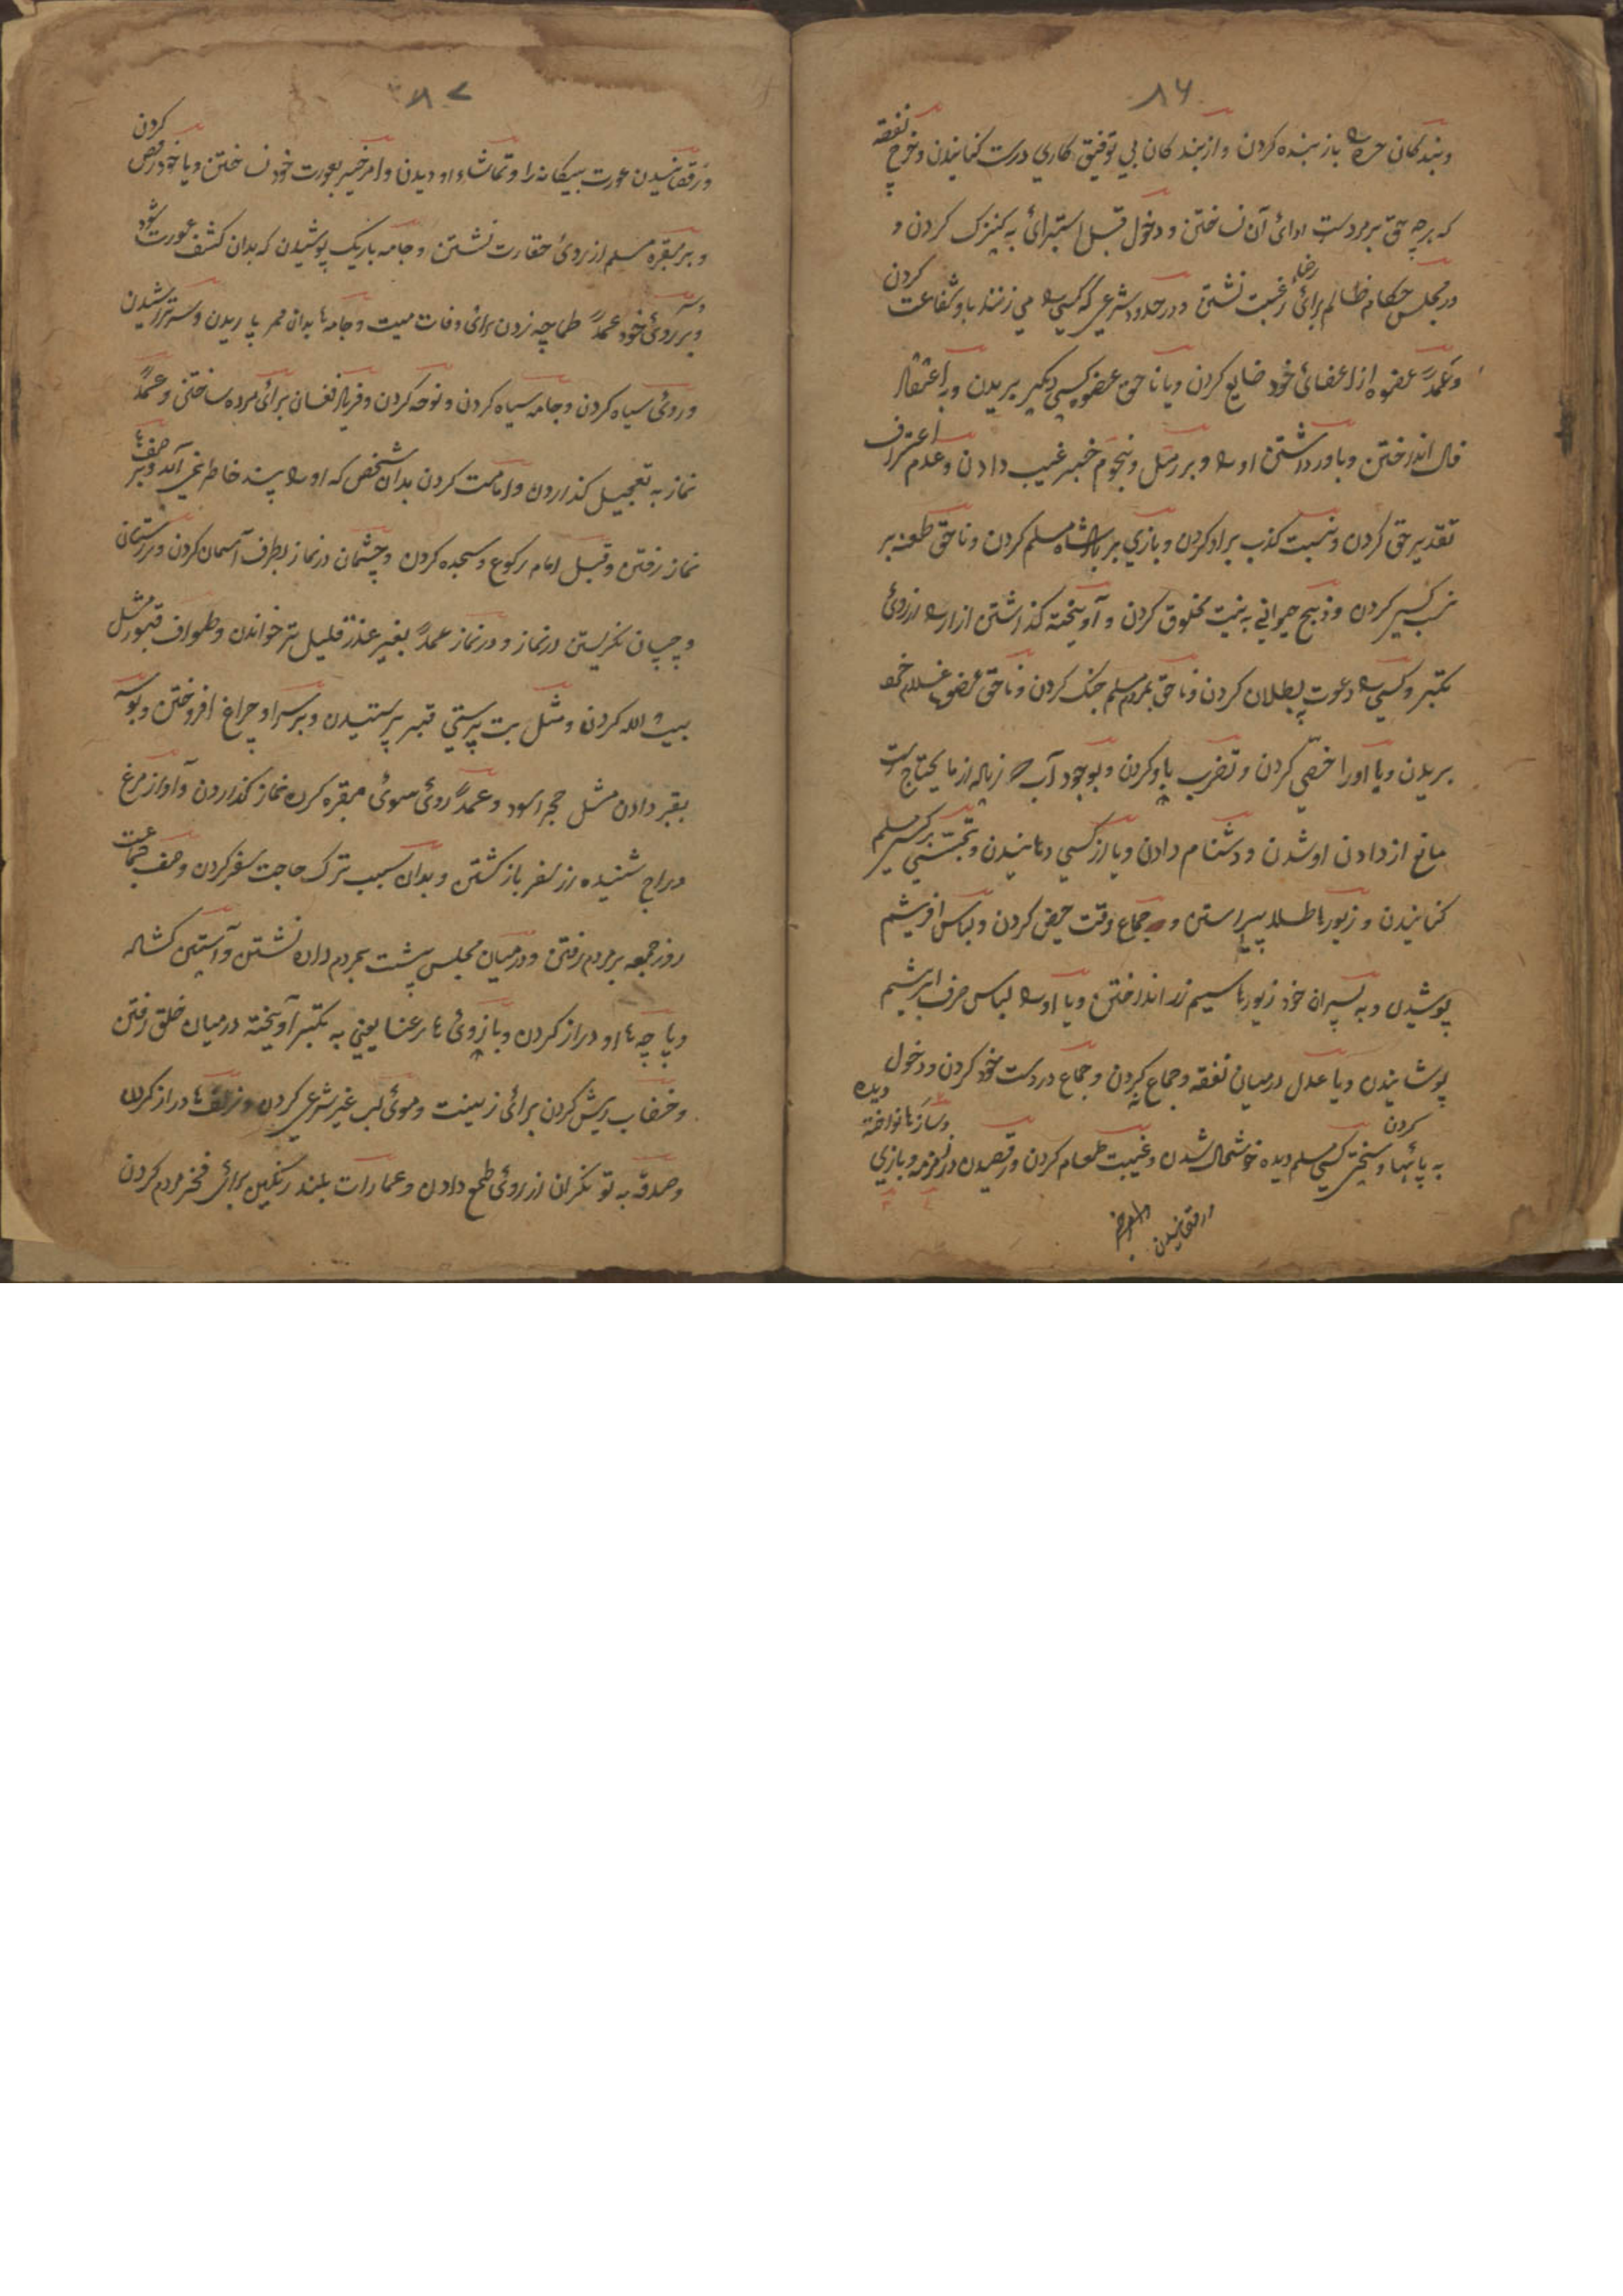 ۸۶
وبندکان حر را باز بنده کردن و از بندکان بی توفیق کاری درست کنانیدن و خرج نفقه
که بر چه حق بر مردست ادائ آن نساختن و دخول قبل استبرائ به کنیزک کردن و
در مجلس حکام ظالم برائ رضا رغبت نشستن و در حدود شرعی که کسی را می زنند باو شفاعت کردن
و عمداً عضوه از اعضائ خود ضایع کردن و یا ناحق عضو کسی دیکر بریدن و به اعتقاد
فال انداختن و باور داشتن او را و بر رمل و نجوم خبر غیب دادن و عدم اعتراف
تقدیر حق کردن و نسبت کذب براو کردن و بازی بر بادشاه مسلم کردن و ناحق طعنه بر
نسب کسی کردن و ذبح حیوانی به نیت مخلوق کردن و آویخته کذاشتن ازار را از روئ
تکبر و کسی را دعوت ببطلان کردن و ناحق بمردم مسلم جنک کردن و ناحق عضو غلام خود
بریدن و یا اورا خصی کردن و تضرب باو کردن و بوجود آب زیاله از ما یحتاج است
مانع از دادن او شدن و دشنام دادن و یا از کسی دهانیدن و تجسس بر کسی مسلم
کنانیدن و زیورها طلا پیراستن و جماع وقت حیض کردن و لباس افریشم
پوشیدن و به پسران خود زیورها سیم زر انداختن و یا او را لباس صرف ابریشم
پوشانیدن و یا عدل درمیان نفقه و جماع کردن و جماع در دست خود کردن و دخول دیده
به پائها و سختی کسی مسلم دیده خوشحال شدن و غیبت طعام کردن و رقصیدن در زمزمه و بازی کردن و سازها نواخته
ورقصانیدن
۸۷
ورقصانیدن عورت بیکانه را و تماشاء او دیدن و امر خیر بعورت خود نساختن و یا خود رقص کردن
و بر مقبره مسلم از روئ حقارت نشستن و جامه باریک پوشیدن که بدان کشف عورت شود
و بر روئ خود عمداً طماچه زدن برائ وفات میت و جامه ها بدان مر پاریدن و سر تراشیدن
و روئ سیاه کردن و جامه سیاه کردن و نوحه کردن و فریاد فغان برائ مرده ساختن و عمداً
نماز به تعجیل کذاردن و امامت کردن بدان شخص که او را پسند خاطر نمی آید و بر صف
نماز رفتن و قبل امام رکوع و سجده کردن و چشمان در نماز بطرف آسمان کردن و راستان
و چپان نکریستن در نماز و در نماز عمداً بغیر عذر قلیل تر خواندن و طواف قبور مثل
بیت الله کردن و مثل بت پرستی قبر پرستیدن و بر سر او چراغ افروختن و بوسه
بقبر دادن مثل حجر اسود و عمداً روئ سوئ مقبره کرده نماز کذاردن و آواز مرغ
دراج شنیده از سفر باز کشتن و بدان سبب ترک حاجت سفر کردن و صف جماعت
روز جمعه بر مردم رفتن و در میان مجلس پشت بمردم داده نشستن و آستین کشاله
و پاچه ها او دراز کردن و بازوئ ها رعنا یعنی به تکبر آویخته درمیان خلق رفتن
و خضاب ریش کردن برائ زینت و موئ لب غیر شرعی کردن و زلف ها دراز کردن
و صدقه به تونکران از روئ طمع دادن و عمارات بلند رنکین برائ فخر مردم کردن